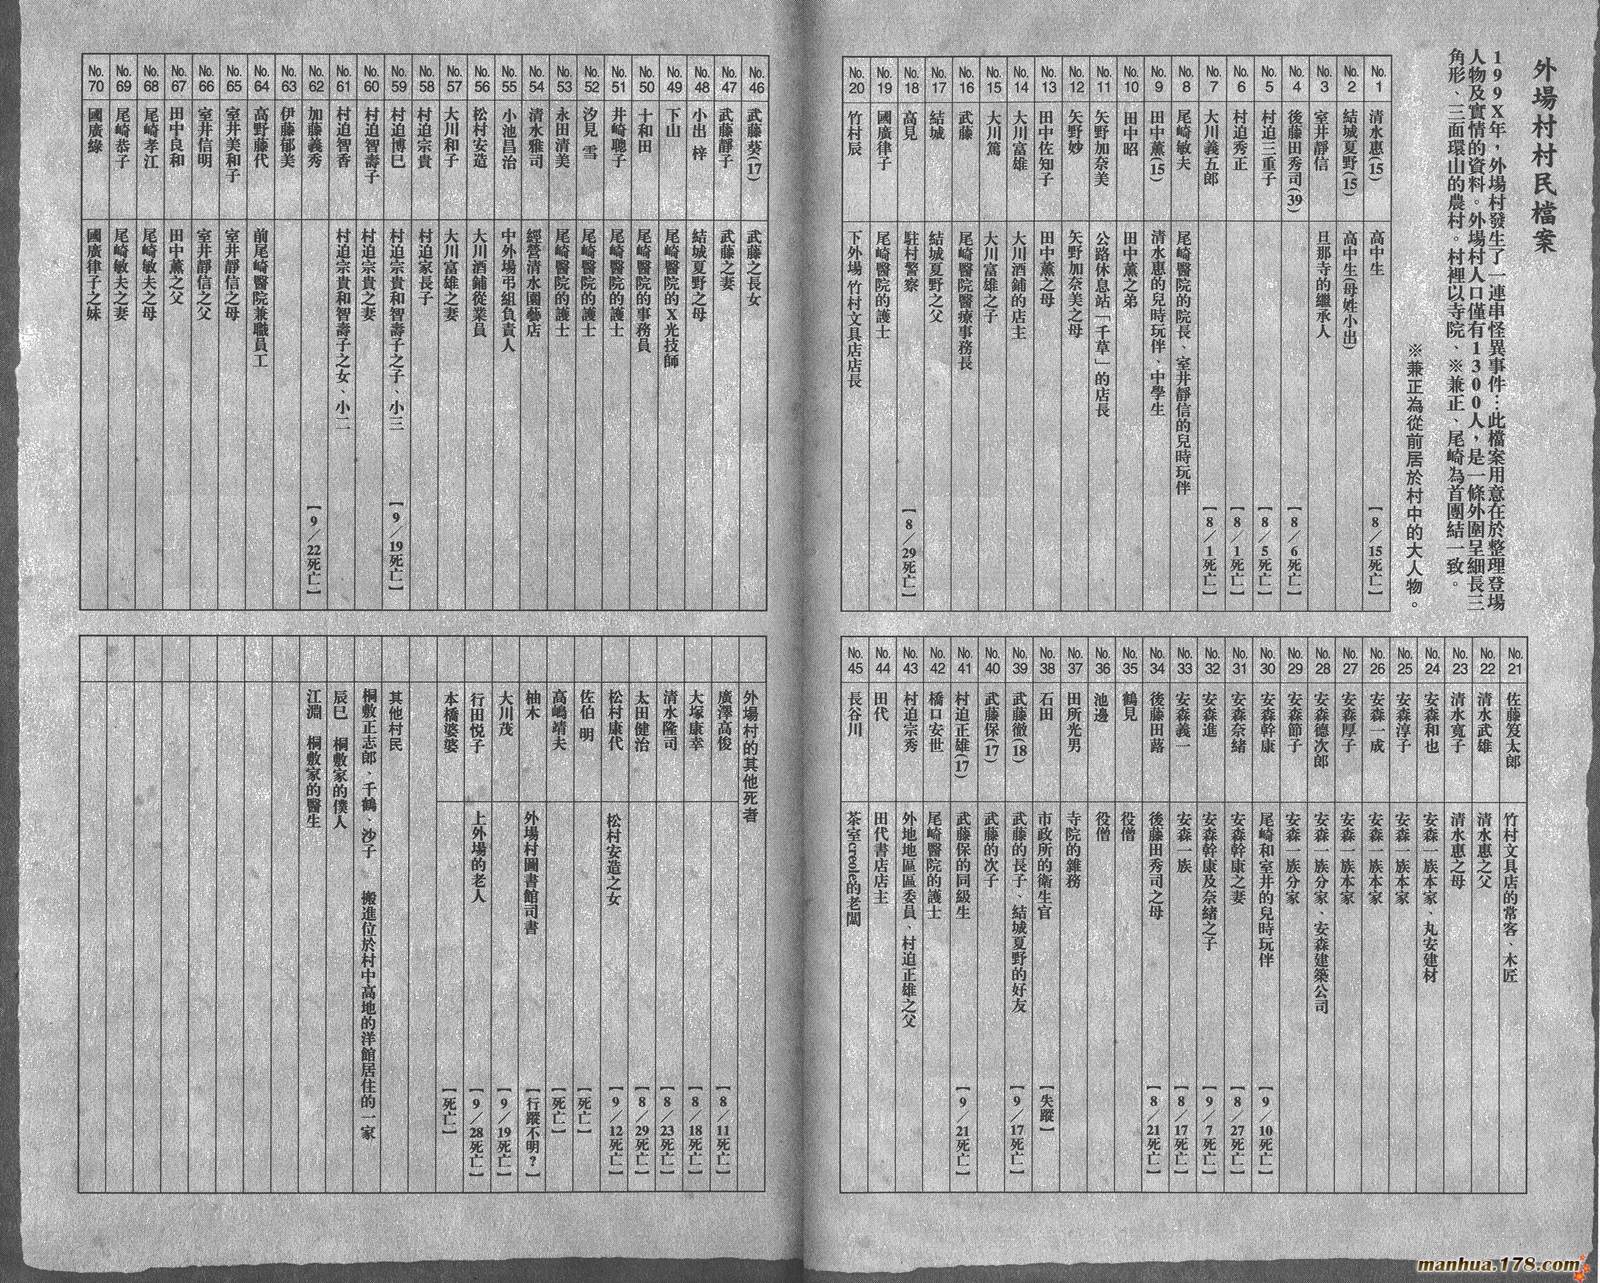 外場村村民檔案
199X年，外場村發生了一連串怪異事件…此檔案用意在於整理登場
人物及實情的資料。外場村人口僅有1300人，是一條外圍呈細長三
角形、三面環山的農村。村裡以寺院、※兼正、尾崎為首團結一致。
※兼正為從前居於村中的大人物。
No.1 清水惠(15) 高中生 【8／15死亡】
No.2 結城夏野(15) 高中生(母姓小出)
No.3 室井靜信 旦那寺的繼承人
No.4 後藤田秀司(39) 【8／6死亡】
No.5 村迫三重子 【8／5死亡】
No.6 村迫秀正 【8／1死亡】
No.7 大川義五郎 【8／1死亡】
No.8 尾崎敏夫 尾崎醫院的院長、室井靜信的兒時玩伴
No.9 田中薰(15) 清水惠的兒時玩伴、中學生
No.10 田中昭 田中薰之弟
No.11 矢野加奈美 公路休息站「千草」的店長
No.12 矢野妙 矢野加奈美之母
No.13 田中佐知子 田中薰之母
No.14 大川富雄 大川酒鋪的店主
No.15 大川篤 大川富雄之子
No.16 武藤 尾崎醫院醫療事務長
No.17 結城 結城夏野之父
No.18 高見 駐村警察 【8／29死亡】
No.19 國廣律子 尾崎醫院的護士
No.20 竹村辰 下外場 竹村文具店店長
No.21 佐藤笈太郎 竹村文具店的常客、木匠
No.22 清水武雄 清水惠之父
No.23 清水寬子 清水惠之母
No.24 安森和也 安森一族本家、丸安建材
No.25 安森淳子 安森一族本家
No.26 安森一成 安森一族本家
No.27 安森厚子 安森一族本家
No.28 安森德次郎 安森一族分家、安森建築公司
No.29 安森節子 安森一族分家
No.30 安森幹康 尾崎和室井的兒時玩伴 【9／10死亡】
No.31 安森奈緒 安森幹康之妻 【8／27死亡】
No.32 安森進 安森幹康及奈緒之子 【9／7死亡】
No.33 安森義一 安森一族 【8／17死亡】
No.34 後藤田蕗 後藤田秀司之母 【8／21死亡】
No.35 鶴見 役僧
No.36 池邊 役僧
No.37 田所光男 寺院的雜務
No.38 石田 市政所的衛生官 【失蹤】
No.39 武藤徹(18) 武藤的長子、結城夏野的好友 【9／17死亡】
No.40 武藤保(17) 武藤的次子
No.41 村迫正雄(17) 武藤保的同級生 【9／21死亡】
No.42 橋口安世 尾崎醫院的護士
No.43 村迫宗秀 外地地區區委員、村迫正雄之父
No.44 田代 田代書店店主
No.45 長谷川 茶室creole的老闆
No.46 武藤葵(17) 武藤之長女
No.47 武藤靜子 武藤之妻
No.48 小出 梓 結城夏野之母
No.49 下山 尾崎醫院的X光技師
No.50 十和田 尾崎醫院的事務員
No.51 井崎聰子 尾崎醫院的護士
No.52 汐見 雪 尾崎醫院的護士
No.53 永田清美 尾崎醫院的護士
No.54 清水雅司 經營清水園藝店
No.55 小池昌治 中外場弔組負責人
No.56 松村安造 大川酒鋪從業員
No.57 大川和子 大川富雄之妻
No.58 村迫宗貴 村迫家長子
No.59 村迫博巳 村迫宗貴和智壽子之子、小三 【9／19死亡】
No.60 村迫智壽子 村迫宗貴之妻
No.61 村迫智香 村迫宗貴和智壽子之女、小二
No.62 加藤義秀 【9／22死亡】
No.63 伊藤郁美
No.64 高野藤代 前尾崎醫院兼職員工
No.65 室井美和子 室井靜信之母
No.66 室井信明 室井靜信之父
No.67 田中良和 田中薰之父
No.68 尾崎孝江 尾崎敏夫之母
No.69 尾崎恭子 尾崎敏夫之妻
No.70 國廣綠 國廣律子之妹
外場村的其他死者
廣澤高俊 【8／11死亡】
大塚康幸 【8／18死亡】
清水隆司 【8／23死亡】
太田健治 【8／29死亡】
松村康代 松村安造之女 【9／12死亡】
佐伯 明 【死亡】
高嶋靖夫 【死亡】
柚木 外場村圖書館司書 【行蹤不明？】
大川茂 【9／19死亡】
行田悅子 上外場的老人 【9／28死亡】
本橋婆婆 【死亡】
其他村民
桐敷正志郎、千鶴、沙子 搬進位於村中高地的洋館居住的一家
辰巳 桐敷家的僕人
江淵 桐敷家的醫生
manhua.178.com